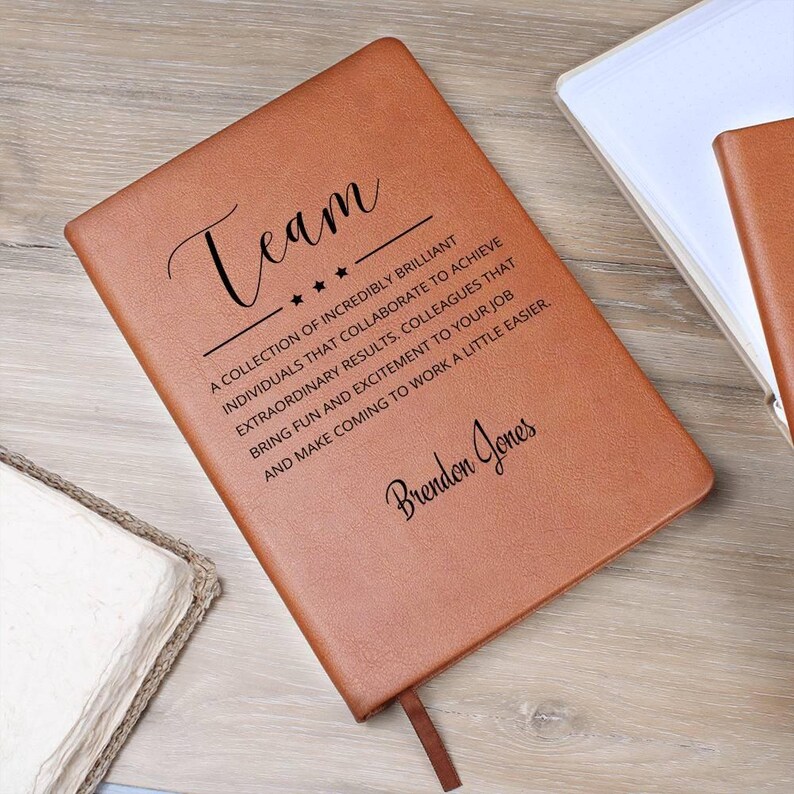 Team
A COLLECTION OF INCREDIBLY BRILLIANT
INDIVIDUALS THAT COLLABORATE TO ACHIEVE
EXTRAORDINARY RESULTS. COLLEAGUES THAT
BRING FUN AND EXCITEMENT TO YOUR JOB
AND MAKE COMING TO WORK A LITTLE EASIER.
Brendon Jones